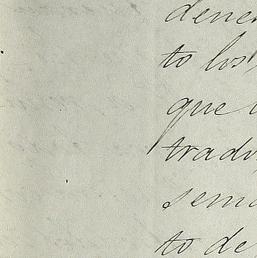 dene
to los
que
tradu
sema
to de